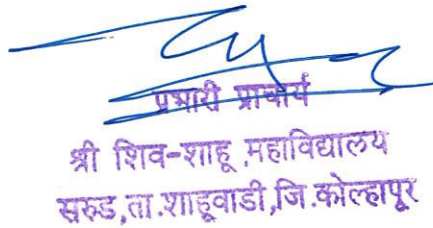 प्रभारी प्राचार्य
श्री शिव-शाहू महाविद्यालय
सरुड, ता.शाहूवाडी, जि.कोल्हापूर